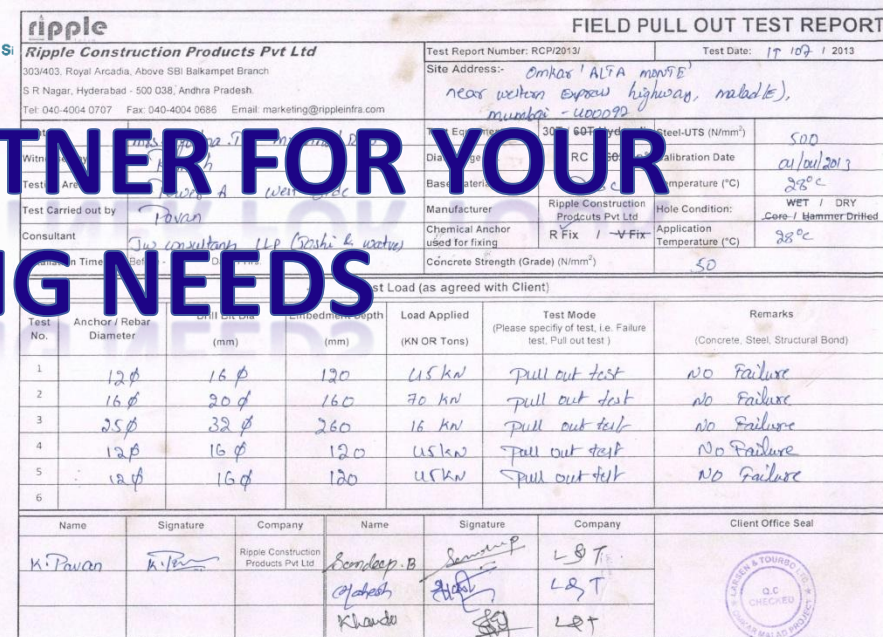 ripple
FIELD PULL OUT TEST REPORT
Si
Ripple Construction Products Pvt Ltd
303/403, Royal Arcadia, Above SBI Balkampet Branch
S R Nagar, Hyderabad - 500 038, Andhra Pradesh.
Tel: 040-4004 0707 Fax: 040-4004 0686 Email: marketing@rippleinfra.com
Test Report Number: RCP/2013/
Test Date: 17 / 07 / 2013
Site Address:- Omkar 'ALTA MONTE'
near western express highway, malad(E),
mumbai - 400092
TNER FOR YOUR
G NEEDS
Steel-UTS (N/mm²) 500
Calibration Date 01/04/2013
Temperature (°C) 28°c
Test Carried out by Pavan
Manufacturer Ripple Construction Prodcuts Pvt Ltd
Hole Condition: WET / DRY
Core / Hammer Drilled
Consultant
Chemical Anchor used for fixing R Fix / V Fix
Application Temperature (°C) 28°c
Concrete Strength (Grade) (N/mm²) 50
Load (as agreed with Client)
Test No. Anchor / Rebar Diameter (mm) Embedment Depth (mm) Load Applied (KN OR Tons) Test Mode (Please specifiy of test, i.e. Failure test, Pull out test ) Remarks (Concrete, Steel, Structural Bond)
1 12 ϕ 16 ϕ 120 45 kN pull out test NO Failure
2 16 ϕ 20 ϕ 160 70 KN pull out test No Failure
3 25 ϕ 32 ϕ 260 16 KN pull out test No Failure
4 12 ϕ 16 ϕ 120 45 kN pull out test No Failure
5 12 ϕ 16 ϕ 120 45 KN pull out test NO Failure
6
Name Signature Company Name Signature Company Client Office Seal
K. Pavan Ripple Construction Products Pvt Ltd Sandeep. B L & T
Mahesh L & T
Khando L & T
LARSEN & TOURBO LTD.
Q.C
CHECKED
OMKAR MALAD PROJECT